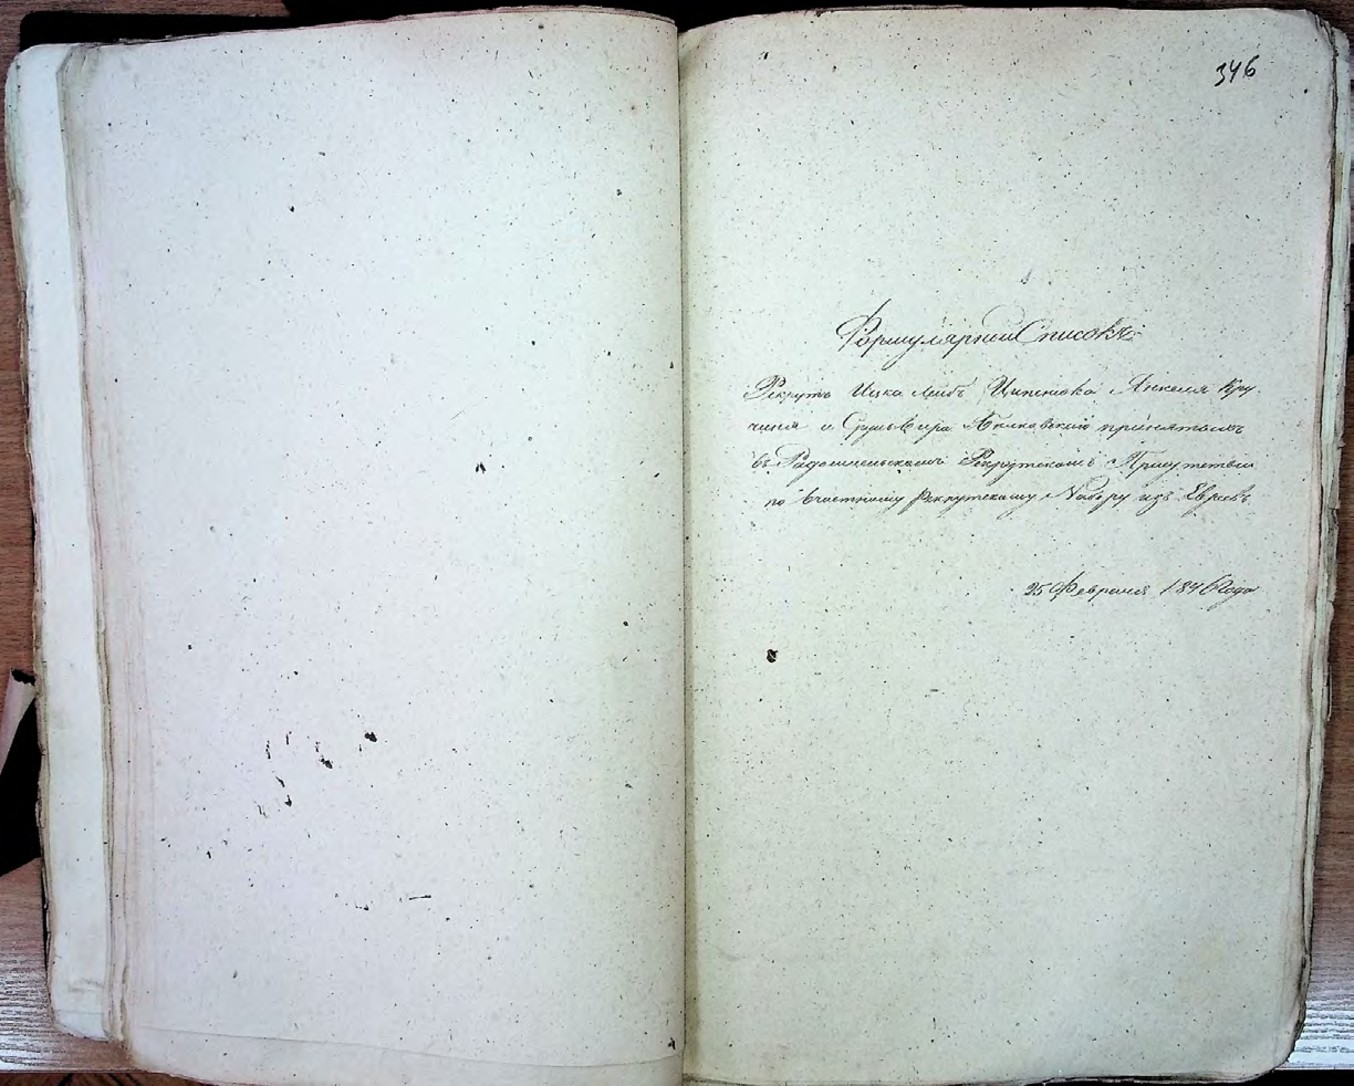 346
Формулярный Списокъ
Рекрутъ Ицка Лейбъ Ципенюка Янкеля Кру-
чина и Сруль Бялковскій принятыхъ
въ Радомысльскомъ Рекрутскомъ Присутствіи
по частному рекрутскому Набору изъ Евреевъ.
25 Февраля 1846 года